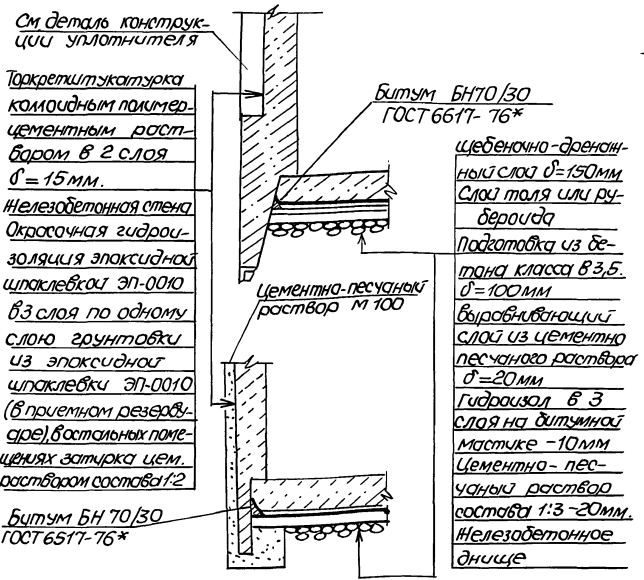 См. деталь конструк-
ции уплотнителя
Торкретштукатурка
коллоидным полимер-
цементным раст-
вором в 2 слоя
δ=15мм.
Железобетонная стена
Окрасочная гидрои-
золяция эпоксидной
шпаклевкой ЭП-0010
в 3 слоя по одному
слою грунтовки
из эпоксидной
шпаклевки ЭП-0010
(в приемном резерву-
аре), в остальных поме-
щениях затирка цем.
раствором состава 1:2
Битум БН 70/30
ГОСТ 6517-76*
Битум БН70/30
ГОСТ 6617-76*
Цементно-песчаный
раствор М 100
щебеночно-дренаж-
ный слой δ=150мм
Слой толя или ру-
бероида
Подготовка из бе-
тона класса В 3,5.
δ=100мм
Выравнивающий
слой из цементно
песчаного раствора
δ=20мм
Гидроизол в 3
слоя на битумной
мастике -10мм
Цементно-пес-
чаный раствор
состава 1:3-20мм.
Железобетонное
днище